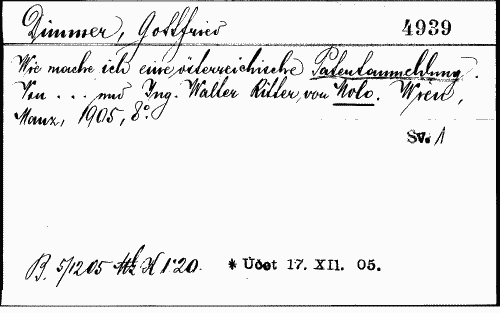 Dimmer, Gottfried 4939
Wie mache ich eine österreichische Patentanmeldung.
Von ... und Ing. Walter Ritter von Molo. Wien,
Manz, 1905, 8°.
Sv. 1
B. 5/12 05 K 1·20. * Üdet 17. XII. 05.